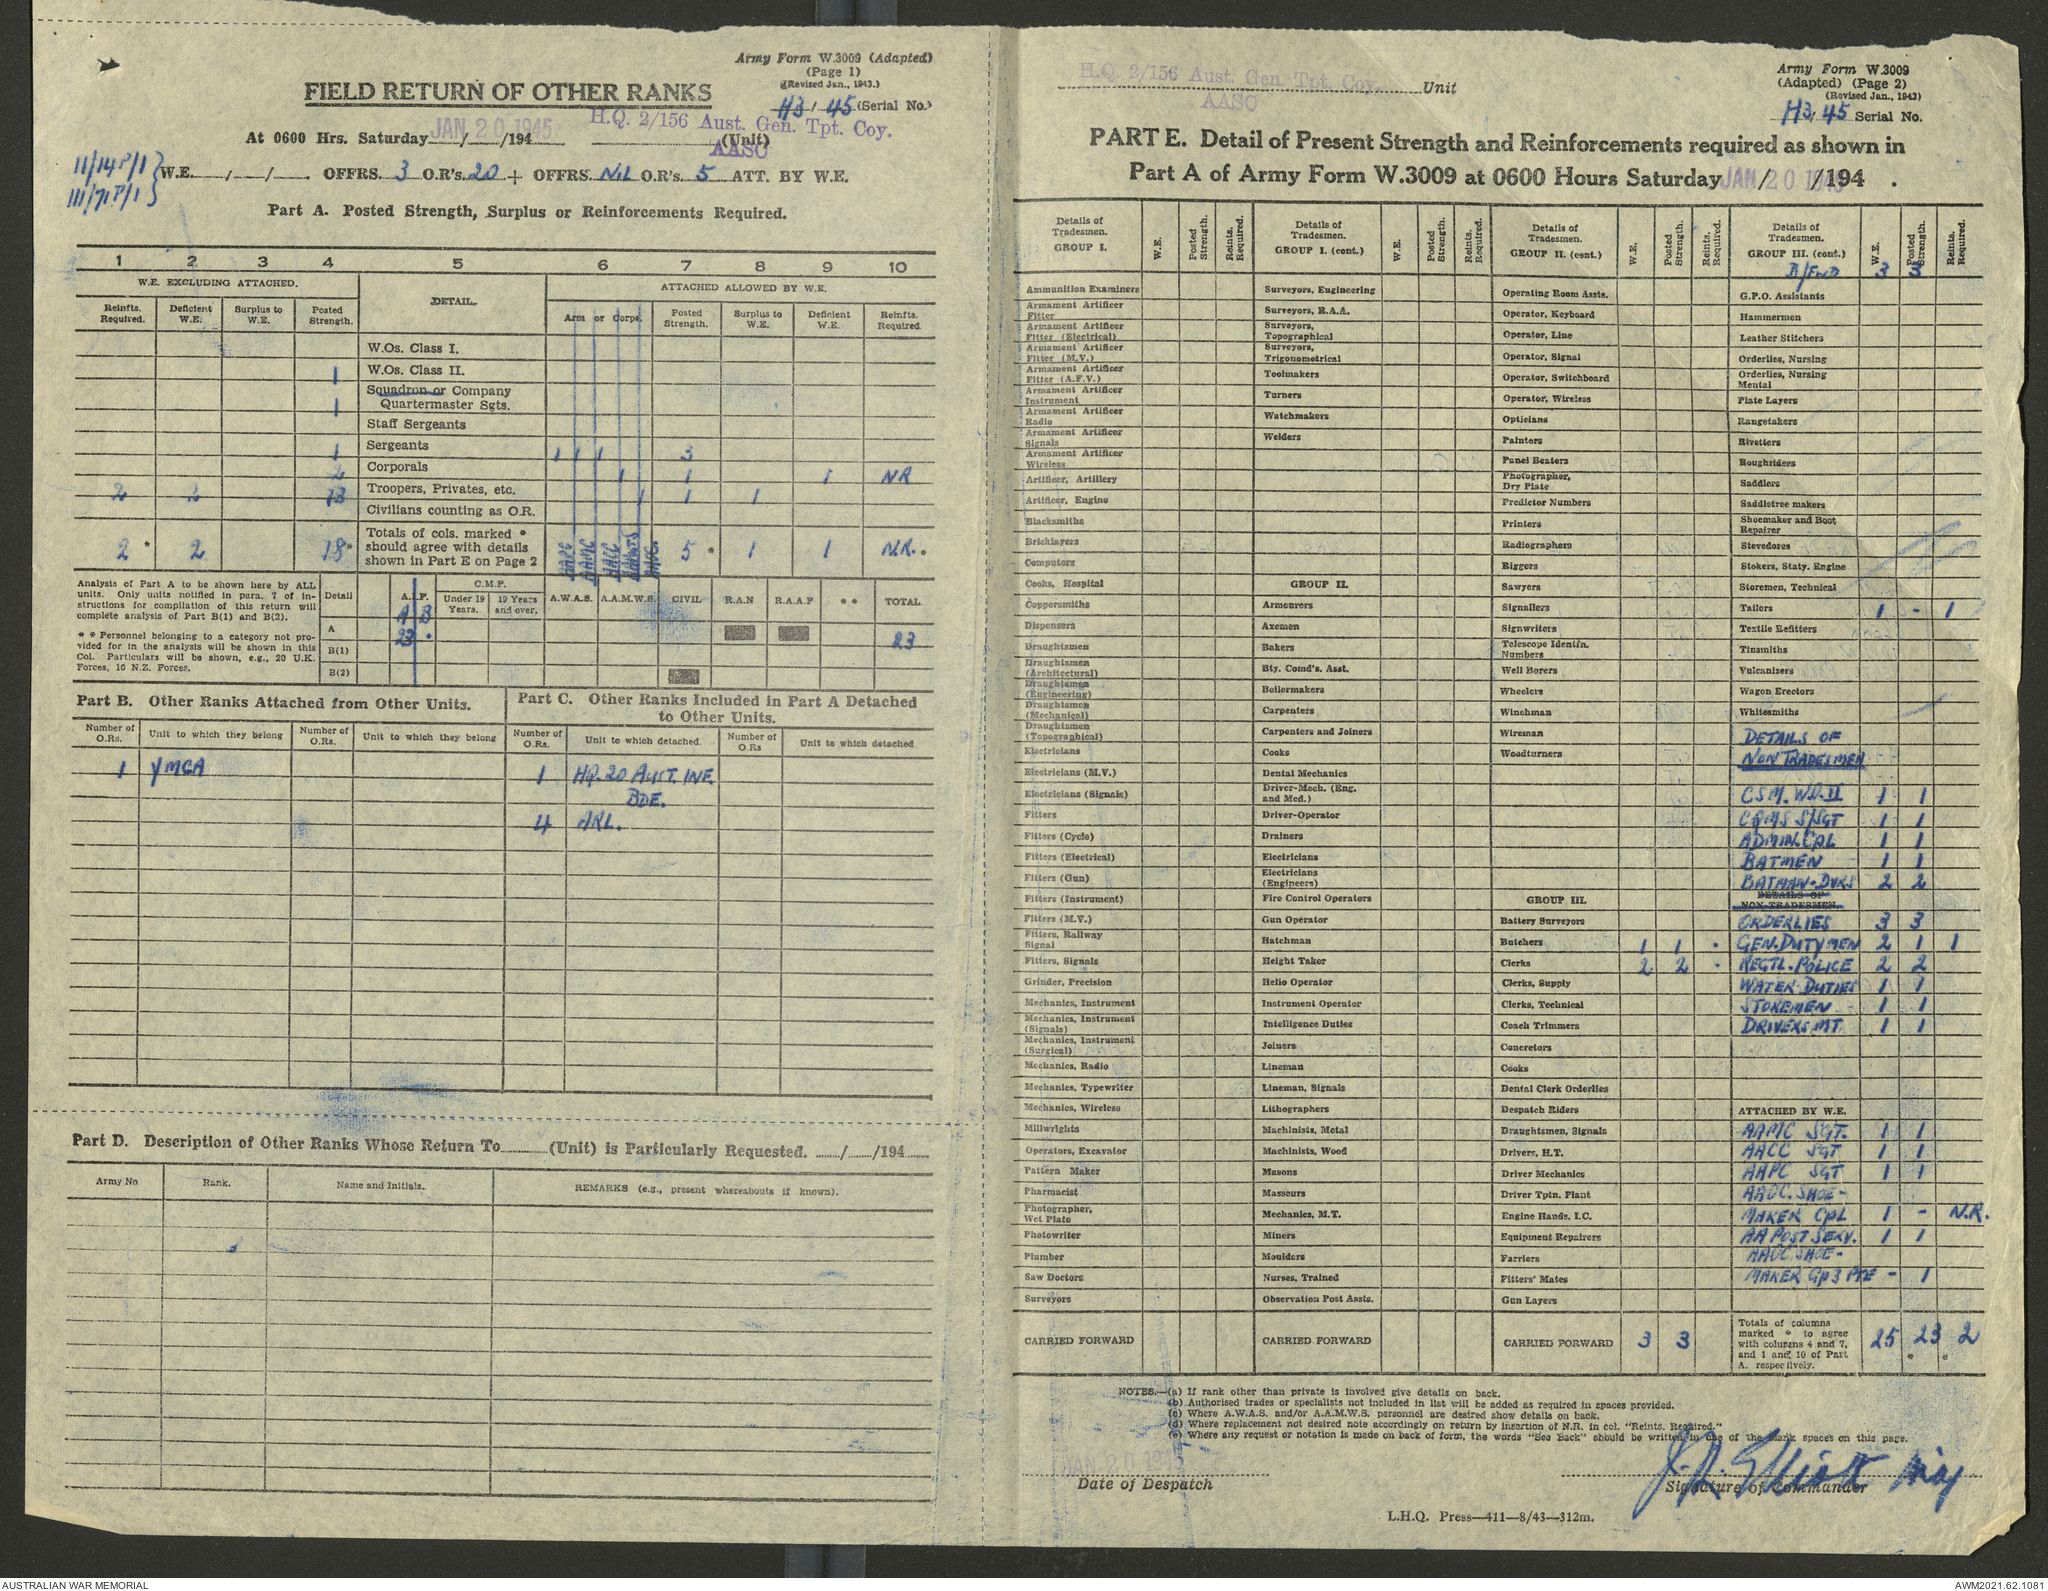 Army Form W.3009 (Adapted)
(Page 1)
(Revised Jan., 1943.)
FIELD RETURN OF OTHER RANKS
H3 / 45 (Serial No.)
At 0600 Hrs. Saturday JAN 20 1945 / /194 H.Q. 2/156 Aust. Gen. Tpt. Coy. (Unit)
AASC
11/14P/1
111/71P/1
W.E. / / . OFFRS. 3 O.R's. 20 + OFFRS. NIL O.R's. 5 ATT. BY W.E.
Part A. Posted Strength, Surplus or Reinforcements Required.
1 2 3 4 5 6 7 8 9 10
W.E. EXCLUDING ATTACHED. DETAIL. ATTACHED ALLOWED BY W.E.
Reinfts. Required. Deficient W.E. Surplus to W.E. Posted Strength. Arm or Corps. Posted Strength. Surplus to W.E. Deficient W.E. Reinfts. Required.
W.Os. Class I.
1 W.Os. Class II.
Squadron or Company
1 Quartermaster Sgts.
Staff Sergeants
1 Sergeants 1 1 1 3
2 Corporals 1 1 1 NR
2 2 13 Troopers, Privates, etc. 1 1 1
Civilians counting as O.R.
Totals of cols. marked *
2 * 2 18* should agree with details 5 * 1 1 N.R. *
shown in Part E on Page 2
AAPC AAMC AACC AAOC.
Analysis of Part A to be shown here by ALL
units. Only units notified in para. 7 of in-
structions for compilation of this return will
complete analysis of Part B(1) and B(2).
* * Personnel belonging to a category not pro-
vided for in the analysis will be shown in this
Col. Particulars will be shown, e.g., 20 U.K.
Forces, 10 N.Z. Forces.
Detail A.I.F. C.M.F. Under 19 Years. 19 Years and over. A.W.A.S. A.A.M.W.S. CIVIL R.A.N R.A.A.F * * TOTAL
A B
A 23 . 23
B(1)
B(2)
Part B. Other Ranks Attached from Other Units.
Number of O.Rs. Unit to which they belong Number of O.Rs. Unit to which they belong
1 YMCA
Part C. Other Ranks Included in Part A Detached
to Other Units.
Number of O.Rs Unit to which detached. Number of O.Rs Unit to which detached
1 HQ. 20 AUST. INF.
BDE.
4 ARL.
Part D. Description of Other Ranks Whose Return To (Unit) is Particularly Requested. / /194
Army No Rank. Name and Initials. REMARKS (e.g., present whereabouts if known).
H.Q. 2/156 Aust. Gen. Tpt. Coy. Unit
AASC
Army Form W.3009
(Adapted) (Page 2)
(Revised Jan., 1943)
H3/45 Serial No.
PART E. Detail of Present Strength and Reinforcements required as shown in
Part A of Army Form W.3009 at 0600 Hours Saturday JAN 20 1945 / /194 .
Details of Tradesmen. GROUP I. W.E. Posted Strength. Reints. Required.
Ammunition Examiners
Armament Artificer Fitter
Armament Artificer Fitter (Electrical)
Armament Artificer Fitter (M.V.)
Armament Artificer Fitter (A.F.V.)
Armament Artificer Instrument
Armament Artificer Radio
Armament Artificer Signals
Armament Artificer Wireless
Artificer, Artillery
Artificer, Engine
Blacksmiths
Bricklayers
Computors
Cooks, Hospital
Coppersmiths
Dispensers
Draughtsmen
Draughtsmen (Architectural)
Draughtsmen (Engineering)
Draughtsmen (Mechanical)
Draughtsmen (Topographical)
Electricians
Electricians (M.V.)
Electricians (Signals)
Fitters
Fitters (Cycle)
Fitters (Electrical)
Fitters (Gun)
Fitters (Instrument)
Fitters (M.V.)
Fitters, Railway Signal
Fitters, Signals
Grinder, Precision
Mechanics, Instrument
Mechanics, Instrument (Signals)
Mechanics, Instrument (Surgical)
Mechanics, Radio
Mechanics, Typewriter
Mechanics, Wireless
Millwrights
Operators, Excavator
Pattern Maker
Pharmacist
Photographer, Wet Plate
Photowriter
Plumber
Saw Doctors
Surveyors
CARRIED FORWARD
Details of Tradesmen. GROUP I. (cont.) W.E. Posted Strength. Reints. Required.
Surveyors, Engineering
Surveyors, R.A.A.
Surveyors, Topographical
Surveyors, Trigonometrical
Toolmakers
Turners
Watchmakers
Welders
GROUP II.
Armourers
Axemen
Bakers
Bty. Comd's. Asst.
Boilermakers
Carpenters
Carpenters and Joiners
Cooks
Dental Mechanics
Driver-Mech. (Eng. and Med.)
Driver-Operator
Drainers
Electricians
Electricians (Engineers)
Fire Control Operators
Gun Operator
Hatchman
Height Taker
Helio Operator
Instrument Operator
Intelligence Duties
Joiners
Lineman
Lineman, Signals
Lithographers
Machinists, Metal
Machinists, Wood
Masons
Masseurs
Mechanics, M.T.
Miners
Moulders
Nurses, Trained
Observation Post Assts.
CARRIED FORWARD
Details of Tradesmen. GROUP II. (cont.) W.E. Posted Strength. Reints. Required.
Operating Room Assts.
Operator, Keyboard
Operator, Line
Operator, Signal
Operator, Switchboard
Operator, Wireless
Opticians
Painters
Panel Beaters
Photographer, Dry Plate
Predictor Numbers
Printers
Radiographers
Riggers
Sawyers
Signallers
Signwriters
Telescope Identfn. Numbers
Well Borers
Wheelers
Winchman
Wireman
Woodturners
GROUP III.
Battery Surveyors
Butchers 1 1 .
Clerks 2 2 .
Clerks, Supply
Clerks, Technical
Coach Trimmers
Concretors
Cooks
Dental Clerk Orderlies
Despatch Riders
Draughtsmen, Signals
Drivers, H.T.
Driver Mechanics
Driver Tptn. Plant
Engine Hands, I.C.
Equipment Repairers
Farriers
Fitters' Mates
Gun Layers
CARRIED FORWARD 3 3
Details of Tradesmen. GROUP III. (cont.) W.E. Posted Strength. Reints. Required.
B/FWD 3 3
G.P.O. Assistants
Hammermen
Leather Stitchers
Orderlies, Nursing
Orderlies, Nursing Mental
Plate Layers
Rangetakers
Rivetters
Roughriders
Saddlers
Saddletree makers
Shoemaker and Boot Repairer
Stevedores
Stokers, Staty. Engine
Storemen, Technical
Tailors 1 - 1
Textile Refitters
Tinsmiths
Vulcanizers
Wagon Erectors
Whitesmiths
DETAILS OF
NON TRADESMEN
CSM. W.O.II 1 1
CQMS S/SGT 1 1
ADMIN. CPL 1 1
BATMEN 1 1
BATMAN-DVRS 2 2
DETAILS OF
NON-TRADESMEN.
ORDERLIES 3 3
GEN. DUTYMEN 2 1 1
REGTL. POLICE 2 2
WATER DUTIES 1 1
STOREMEN 1 1
DRIVERS MT 1 1
ATTACHED BY W.E.
AAMC SGT. 1 1
AACC SGT 1 1
AAPC SGT 1 1
AAOC. SHOE-
MAKER CPL 1 - N.R.
AA POST SERV. 1 1
AAOC SHOE-
MAKER Gp 3 PTE - 1
Totals of columns
marked * to agree
with columns 4 and 7,
and 1 and 10 of Part
A. respectively.
25 23 * 2 *
NOTES.—(a) If rank other than private is involved give details on back.
(b) Authorised trades or specialists not included in list will be added as required in spaces provided.
(c) Where A.W.A.S. and/or A.A.M.W.S. personnel are desired show details on back.
(d) Where replacement not desired note accordingly on return by insertion of N.R. in col. "Reints. Required."
(e) Where any request or notation is made on back of form, the words "See Back" should be written in one of the blank spaces on this page.
JAN 20 1945
Date of Despatch
J.R. Elliott Maj
Signature of Commander
L.H.Q. Press—411—8/43—312m.
AUSTRALIAN WAR MEMORIAL
AWM2021.62.1081